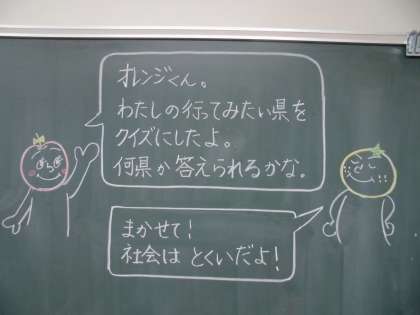 オレンジくん。
わたしの行ってみたい県を
クイズにしたよ。
何県か答えられるかな。
まかせて!
社会は とくいだよ!